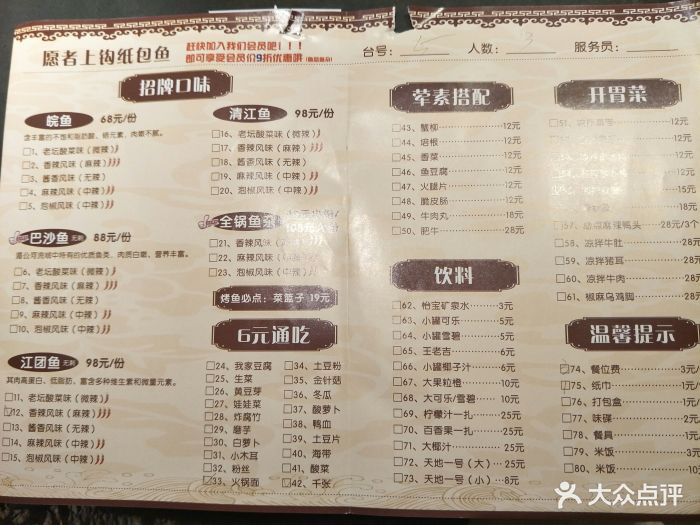 愿者上钩纸包鱼
赶快加入我们会员吧!!!
即可享受会员价9折优惠哦
台号:
人数: 3
服务员:
招牌口味
皖鱼 68元/份
含丰富的不饱和脂肪酸、硒元素、肉嫩不腻。
1、老坛酸菜味(微辣)
2、香辣风味(麻辣)
3、酱香风味(无辣)
4、麻辣风味(中辣)
5、泡椒风味(中辣)
巴沙鱼 无刺 88元/份
湄公河流域中特有的优质鱼类、肉质白嫩、营养丰富。
6、老坛酸菜味(微辣)
7、香辣风味(麻辣)
8、酱香风味(无辣)
9、麻辣风味(中辣)
10、泡椒风味(中辣)
江团鱼 无刺 98元/份
其肉高蛋白、低脂肪、富含多种维生素和微量元素。
11、老坛酸菜味(微辣)
12、香辣风味(麻辣)
13、酱香风味(无辣)
14、麻辣风味(中辣)
15、泡椒风味(中辣)
清江鱼 98元/份
16、老坛酸菜味(微辣)
17、香辣风味(麻辣)
18、酱香风味(无辣)
19、麻辣风味(中辣)
20、泡椒风味(中辣)
全锅鱼
21、香辣风味(麻辣)
22、麻辣风味(中辣)
23、酸菜风味(中辣)
烤鱼必点:菜篮子 19元
6元通吃
24、我家豆腐
25、生菜
26、黄豆芽
27、娃娃菜
28、炸腐竹
29、磨芋
30、白萝卜
31、小木耳
32、粉丝
33、火锅面
34、土豆粉
35、金针菇
36、冬瓜
37、酸萝卜
38、鸭血
39、土豆片
40、海带
41、酸菜
42、千张
荤素搭配
43、蟹柳 12元
44、塔根 12元
45、香菜 12元
46、鱼豆腐 12元
47、火腿片 12元
48、脆皮肠 12元
49、牛肉丸 18元
50、肥牛 28元
饮料
62、怡宝矿泉水 3元
63、小罐可乐 5元
64、小罐雪碧 5元
65、王老吉 6元
66、小罐椰子汁 6元
67、大果粒橙 10元
68、大可乐/雪碧 10元
69、柠檬汁一扎 25元
70、百香果一扎 25元
71、大椰汁 25元
72、天地一号(大) 25元
73、天地一号(小) 8元
开胃菜
12元
12元
12元
12元
15元
57、 麻辣鸭头 28元/3个
58、凉拌牛肚 28元
59、凉拌猪耳 28元
60、凉拌牛肉 28元
61、椒麻乌鸡脚 28元
温馨提示
74、餐位费 3元/
75、纸巾 1元/
76、打包盒 1元/
77、味碟 2元/
78、餐具 1元/
79、米饭 3元/
80、米饭 10元
大众点评